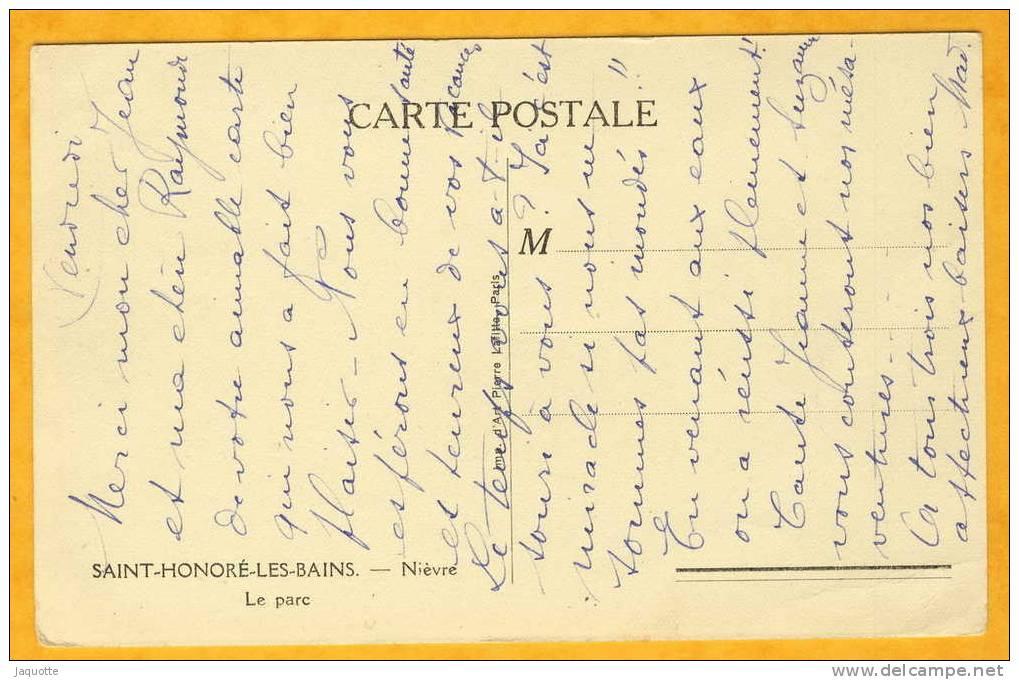 CARTE POSTALE
M
Imp. d'Art Pierre Lafitte, Paris
SAINT-HONORÉ-LES-BAINS. — Nièvre
Le parc
Vendredi
Merci mon cher Jean
et ma chère Raymonde
de votre aimable carte
qui nous a fait bien
plaisir — Nous vous
espérons en bonne santé
et heureux de vos vacances
Le temps vous a-t-il
souri à vous ? Ici c'est
miracle si nous ne
sommes pas inondés !!
En venant aux eaux
on a réussi pleinement !!
Tante Jeanne et Suzanne
vous conteront nos mésa-
ventures --
A tous trois nos bien
affectueux baisers Mad.
Jaquotte
www.delcampe.net